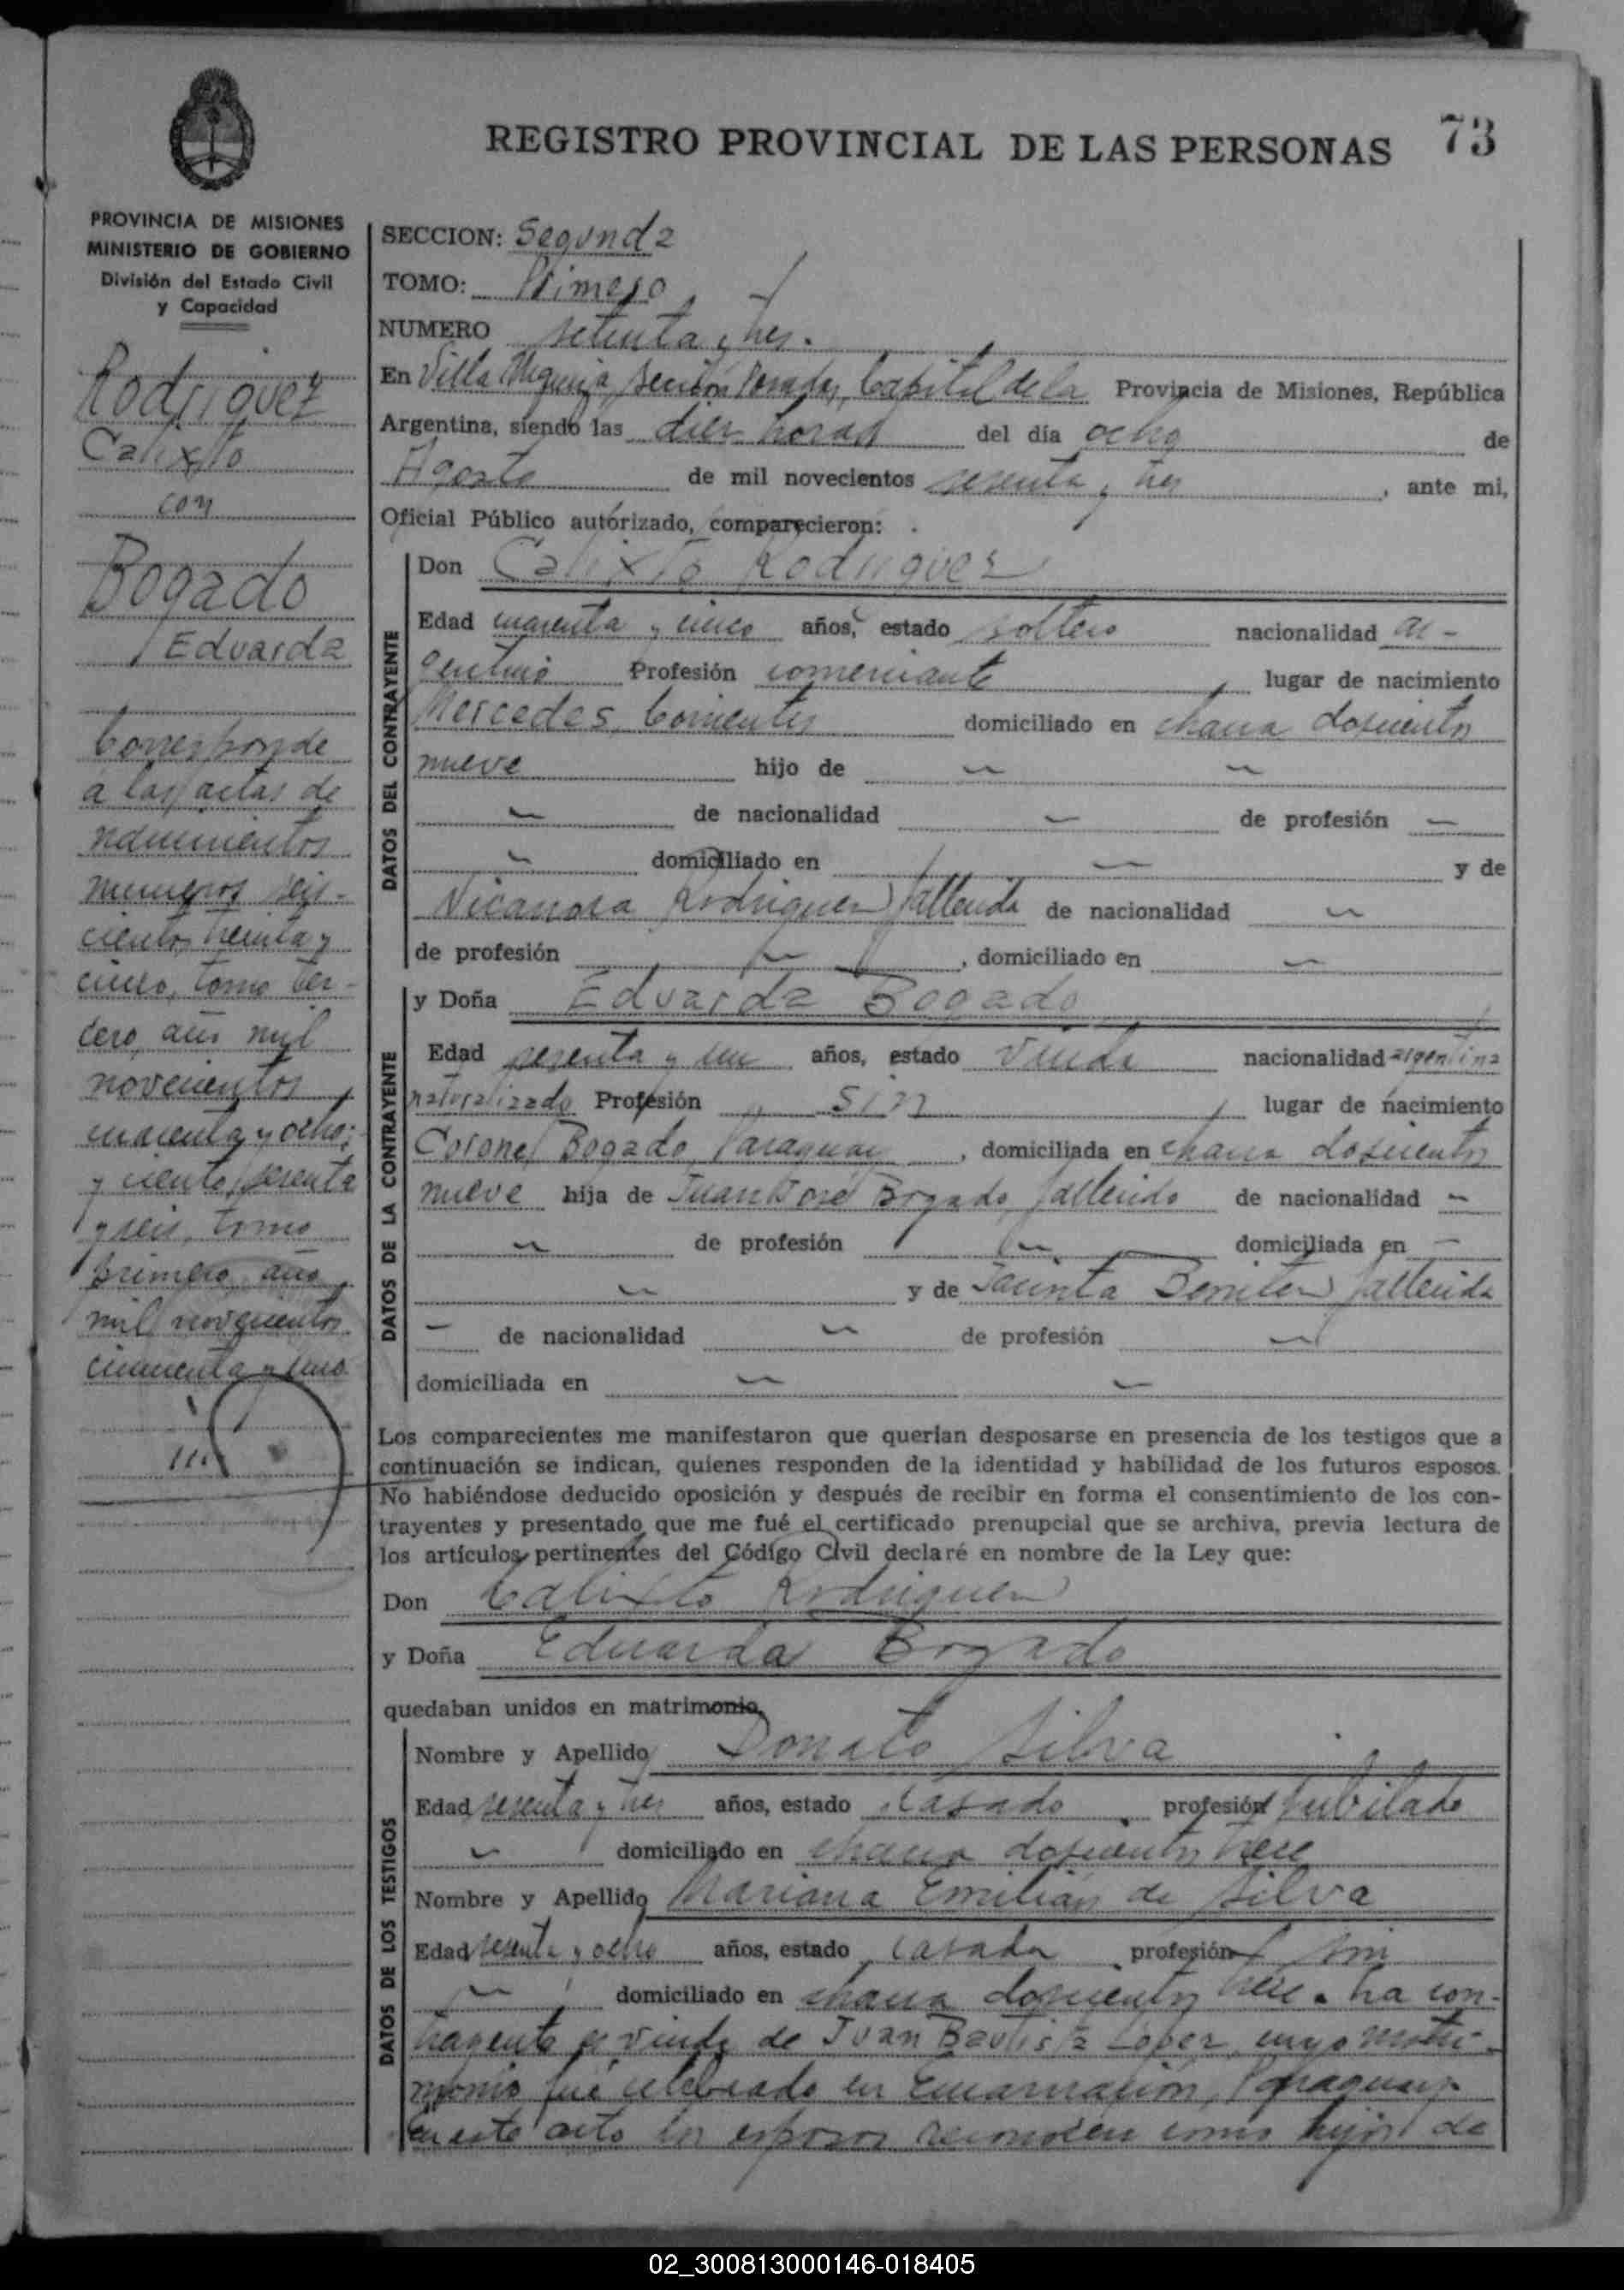 REGISTRO PROVINCIAL DE LAS PERSONAS 73
PROVINCIA DE MISIONES
MINISTERIO DE GOBIERNO
División del Estado Civil
y Capacidad
Rodriguez
Calixto
con
Bogado
Eduarda
Corresponde
a las actas de
nacimientos
números seis-
cientos treinta y
cinco, tomo ter-
cero, año mil
novecientos
cuarenta y ocho;
y ciento sesenta
y seis, tomo
primero, año
mil novecientos
cincuenta y uno
SECCION: Segunda
TOMO: Primero
NUMERO setenta y tres.
En Villa Urquiza, Sección Posadas, Capital de la Provincia de Misiones, República
Argentina, siendo las diez horas del día ocho de
Agosto de mil novecientos sesenta y tres, ante mi,
Oficial Público autorizado, comparecieron:
DATOS DEL CONTRAYENTE
Don Calixto Rodriguez
Edad cuarenta y cinco años, estado soltero nacionalidad ar-
gentino Profesión comerciante, lugar de nacimiento
Mercedes, Corrientes domiciliado en chacra doscientos
nueve hijo de
de nacionalidad de profesión
domiciliado en y de
Nicanora Rodriguez, fallecida de nacionalidad
de profesión , domiciliado en
DATOS DE LA CONTRAYENTE
y Doña Eduarda Bogado
Edad sesenta y un años, estado viuda nacionalidad argentina
naturalizada Profesión sin, lugar de nacimiento
Coronel Bogado, Paraguay, domiciliada en chacra doscientos
nueve hija de Juan José Bogado, fallecido de nacionalidad
de profesión domiciliada en
y de Jacinta Benitez, fallecida
de nacionalidad de profesión
domiciliada en
Los comparecientes me manifestaron que querían desposarse en presencia de los testigos que a
continuación se indican, quienes responden de la identidad y habilidad de los futuros esposos.
No habiéndose deducido oposición y después de recibir en forma el consentimiento de los con-
trayentes y presentado que me fué el certificado prenupcial que se archiva, previa lectura de
los artículos pertinentes del Código Civil declaré en nombre de la Ley que:
Don Calixto Rodriguez
y Doña Eduarda Bogado
quedaban unidos en matrimonio.
DATOS DE LOS TESTIGOS
Nombre y Apellido Donato Silva
Edad sesenta y tres años, estado casado profesión jubilado
domiciliado en chacra doscientos trece
Nombre y Apellido Mariana Emilián de Silva
Edad sesenta y ocho años, estado casada profesión sin
domiciliado en chacra doscientos trece. La con-
trayente es viuda de Juan Bautista Lopez, cuyo matri-
monio fué celebrado en Encarnación, Paraguay.
En este acto los esposos reconocen como hijos de
02_300813000146-018405